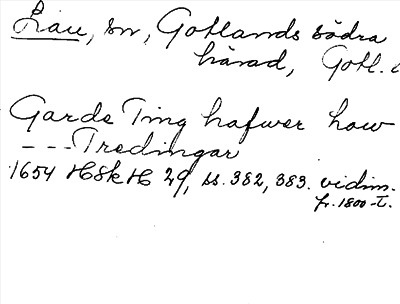 Lau, sn, Gotlands södra
härad, Gotl.
Garde Ting hafwer how
--- Tredingar
1654 HSkH 29, ss. 382, 383. vidim.
fr. 1800-t.